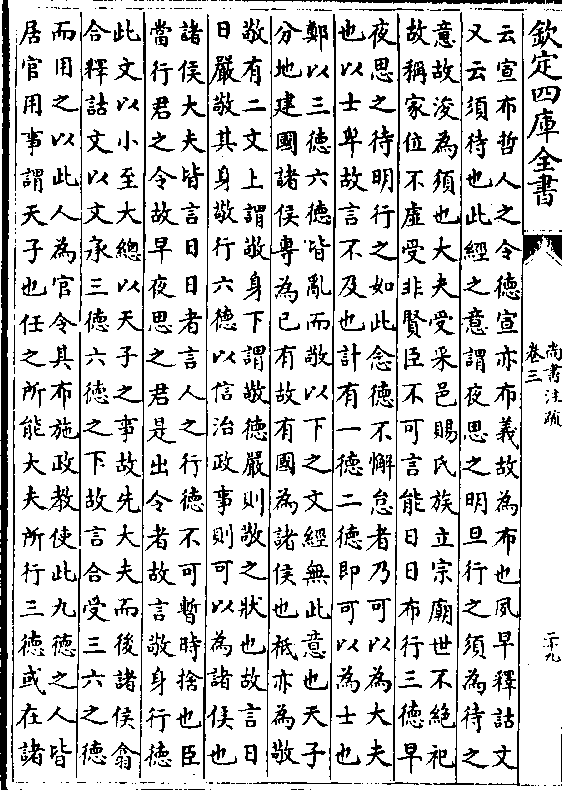 欽定四庫全書
尚書注疏
卷三
二十九
云宣布哲人之令德宣亦布義故為布也夙早釋詁文
又云須待也此經之意謂夜思之明旦行之須為待之
意故浚為須也大夫受采邑賜氏族立宗廟世不絕祀
故稱家位不虛受非賢臣不可言能日日布行三德早
夜思之待明行之如此念德不懈怠者乃可以為大夫
也以士卑故言不及也計有一德二德即可以為士也
鄭以三德六德皆亂而敬以下之文經無此意也天子
分地建國諸侯專為已有故有國為諸侯也祗亦為敬
敬有二文上謂敬身下謂敬德嚴則敬之狀也故言日
日嚴敬其身敬行六德以信治政事則可以為諸侯也
諸侯大夫皆言日日者言人之行德不可暫時捨也臣
當行君之令故早夜思之君是出令者故言敬身行德
此文以小至大總以天子之事故先大夫而後諸侯翕
合釋詁文以文承三德六德之下故言合受三六之德
而用之以此人為官令其布施政教使此九德之人皆
居官用事謂天子也任之所能大夫所行三德或在諸